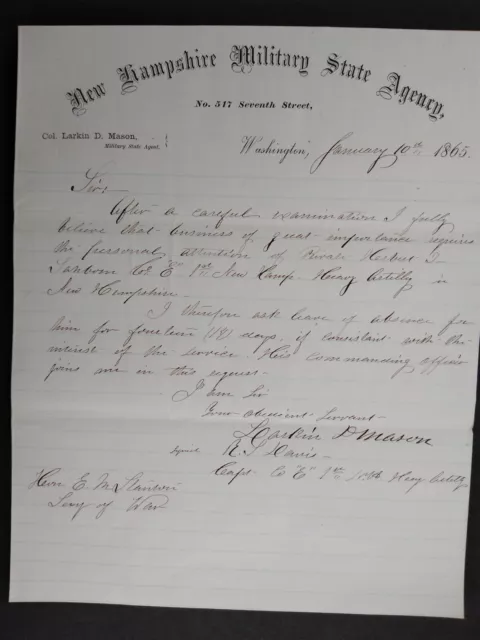 New Hampshire Military State Agency,
No. 517 Seventh Street,
Col. Larkin D. Mason,
Military State Agent.
Washington, January 10th 1865.
Sir
After a careful examination I fully
believe that business of great importance requires
the personal attention of Private Herbert J.
Sanborn Co "E" 1st New Hamp. Heavy Artilly in
New Hampshire.
I therefore ask leave of absence for
him for fourteen (14) days, if consistant with the
interest of the service. His commanding officer
joins me in this request.
I am Sir
Your obedient Servant
Larkin D Mason
signed R. J. Davis
Capt Co "E" 1st N.H. Heavy Artilly
Hon. E. M. Stanton
Secry of War